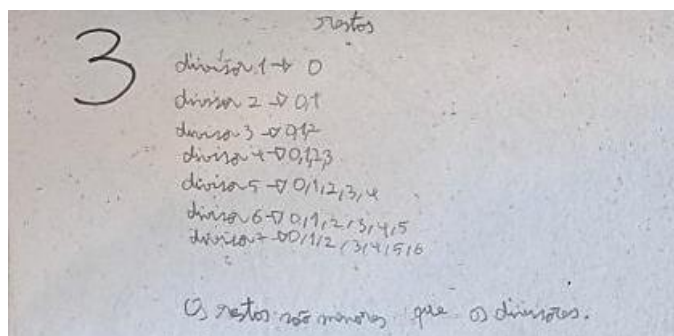 restos
3
divisor 1 → 0
divisor 2 → 0,1
divisor 3 → 0,1,2
divisor 4 → 0,1,2,3
divisor 5 → 0,1,2,3,4
divisor 6 → 0,1,2,3,4,5
divisor 7 → 0,1,2,3,4,5,6
Os restos são menores que os divisores.